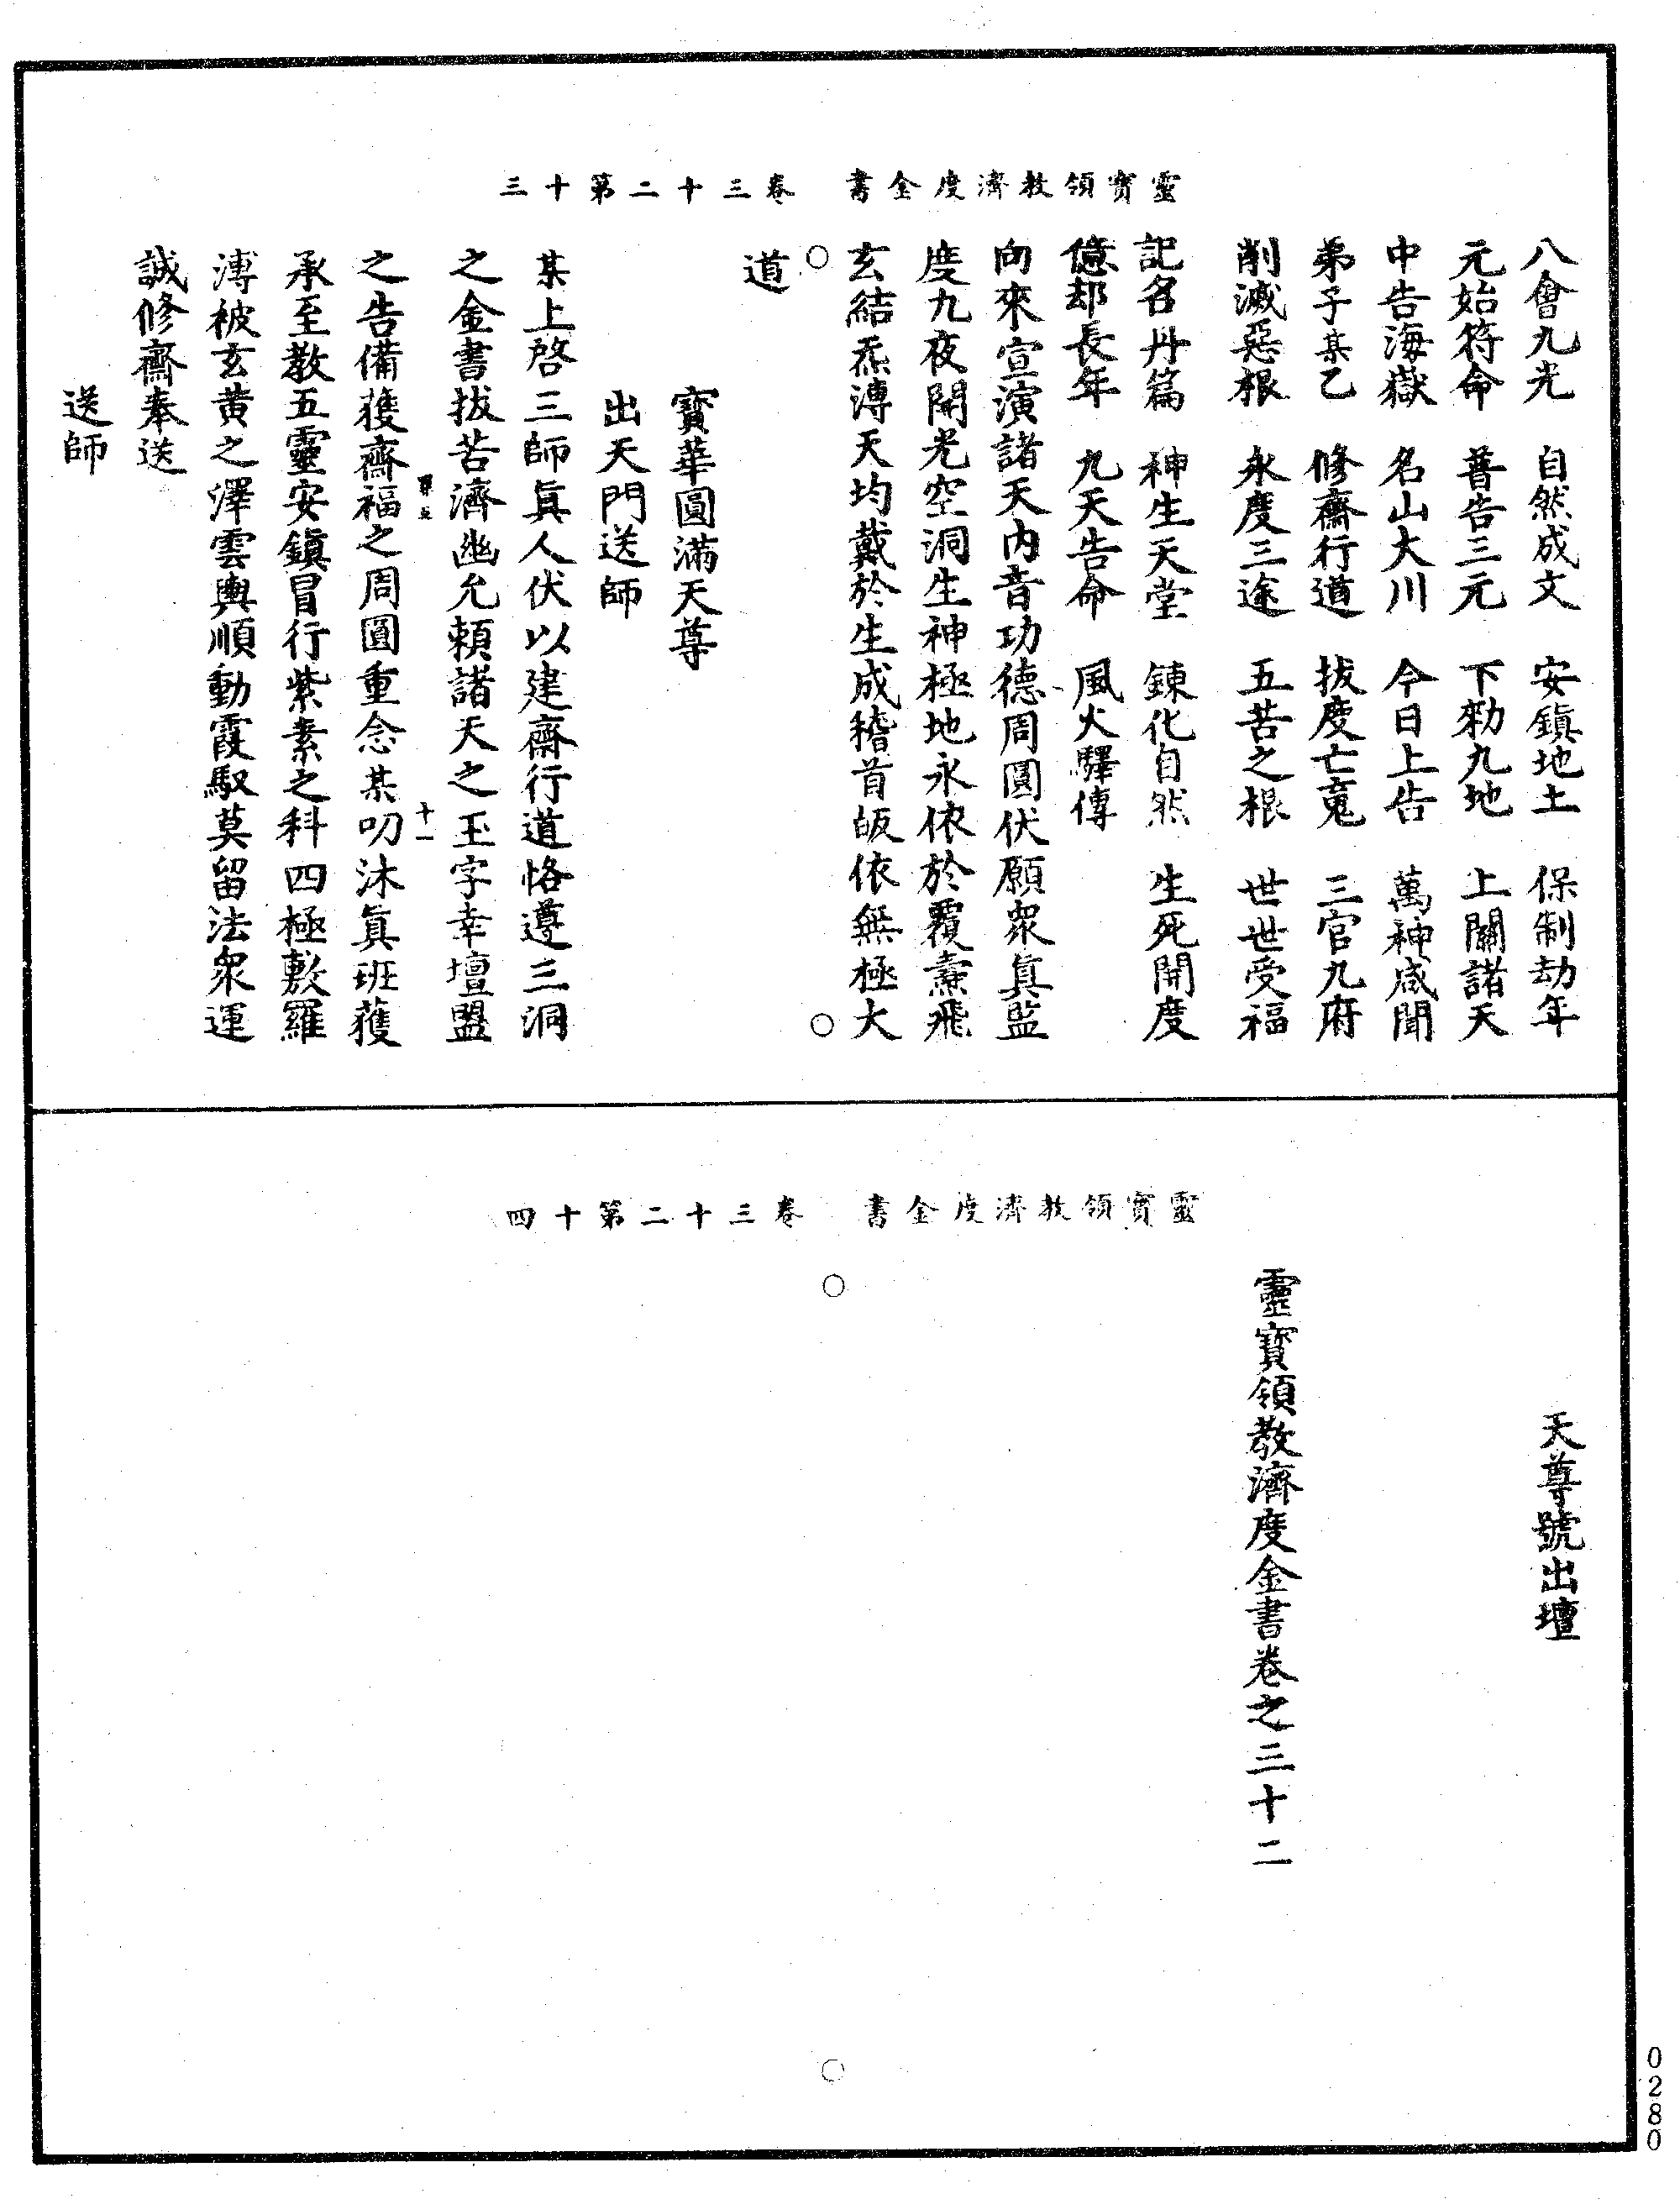 靈寶領教濟度金書　卷三十二第十三
八會九光　自然成文　安鎮地土　保制劫年
元始符命　普告三元　下勑九地　上關諸天
中告海嶽　名山大川　今日上告　萬神咸聞
弟子某乙　修齋行道　拔度亡䰟　三官九府
削滅惡根　永度三途　五苦之根　世世受福
記名丹篇　神生天堂　鍊化自然　生死開度
億却長年　九天告命　風火驛傳
向來宣演諸天內音功德周圓伏願衆真監
度九夜開光空洞生神極地永依於覆燾飛
玄結炁溥天均戴於生成稽首皈依無極大
道
寶華圓滿天尊
出天門送師
某上啓三師眞人伏以建齋行道恪遵三洞
之金書拔苦濟幽允頼諸天之玉字幸壇盟
之告備獲齋福之周圓重念某叨沐眞班獲
承至教五靈安鎮冒行紫素之科四極敷羅
溥被玄黄之澤雲輿順動霞馭莫留法衆運
誠修齋奉送
送師
十一
靈寶領教濟度金書　卷三十二第十四
天尊號出壇
靈寶領教濟度金書卷之三十二
0280